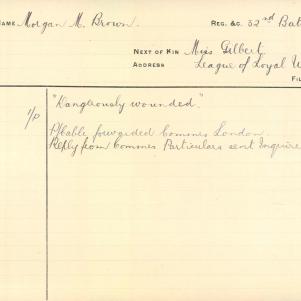 NAME Morgan M. Brown. REG. &C. 32nd Bat
NEXT OF KIN Miss Gilbert
ADDRESS League of Loyal W
FIL
"Dangerously wounded."
Cable forwarded Commes London.
Reply from Commes Particulars sent Enquire